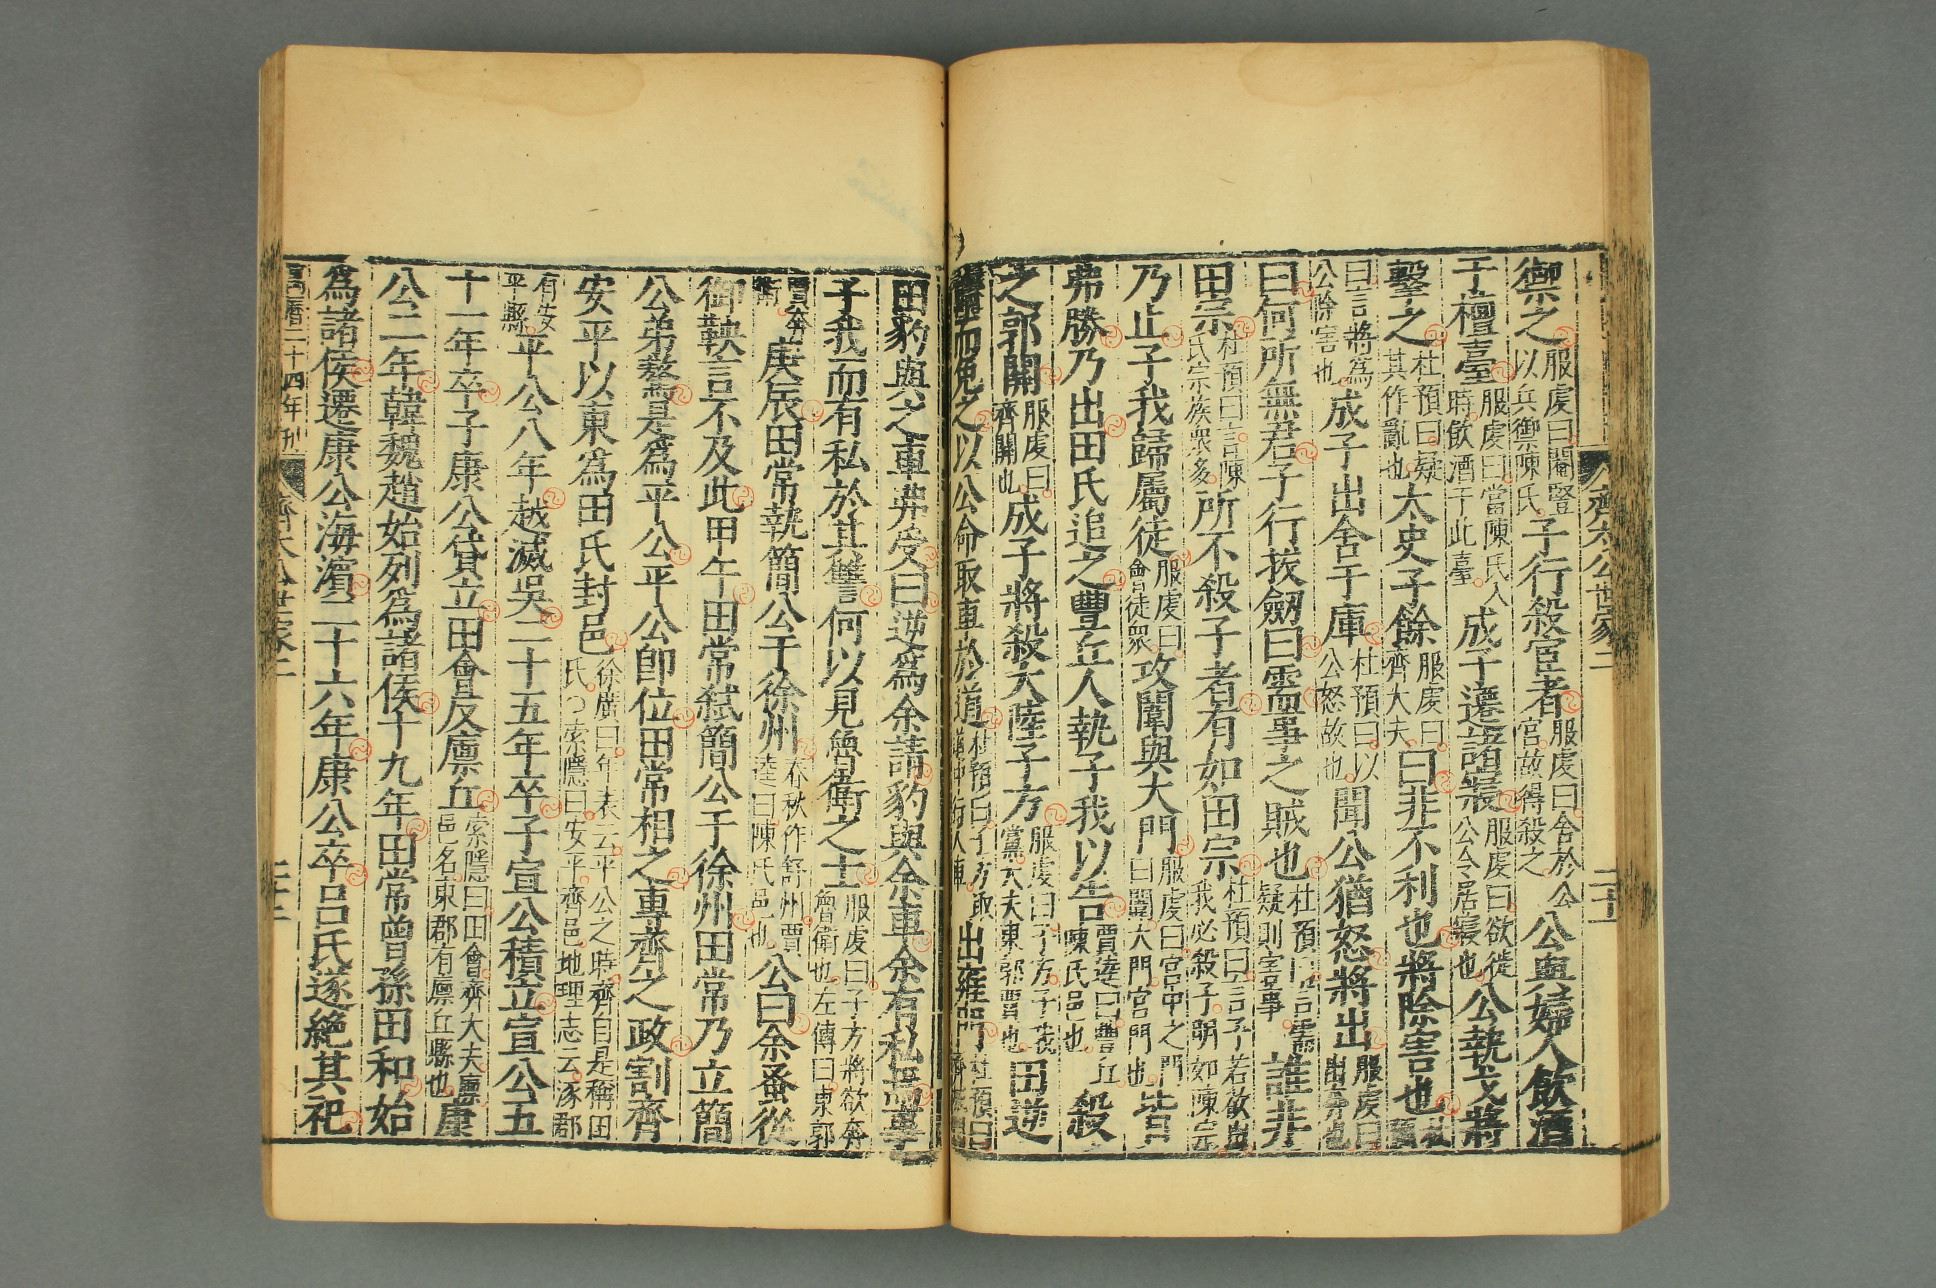 齊太公世家二
禦之服虔曰閹豎以兵禦陳氏子行殺宦者服虔曰舍於公宮故得殺之公與婦人飲酒
于檀臺服虔曰當陳氏入時飲酒于此臺成子遷諸寢服虔曰欲徙公令居寢也公執戈將
擊之杜預曰疑其作亂也太史子餘服虔曰齊大夫曰非不利也將除害也
曰言將為公除害也成子出舍于庫杜預曰以公怒故也聞公猶怒將出服虔曰出奔也
曰何所無君子行拔劒曰需事之賊也杜預曰言需疑則害事誰非
田宗杜預曰言陳氏宗族衆多所不殺子者有如田宗杜預曰言子若欲出我必殺子明如陳宗
乃止子我歸屬徒服虔曰會徒衆攻闈與大門服虔曰宮中之門曰闈大門宮門也皆
弗勝乃出田氏追之豐丘人執子我以告賈逵曰豐丘陳氏邑也殺
之郭關服虔曰齊關也成子將殺大陸子方服虔曰子方子我黨大夫東郭賈也田逆
而免之以公命取車於道杜預曰子方取道中行人車出雍門杜預曰齊城門
田豹與之車弗受曰逆為余請豹與余車余有私焉事
子我而有私於其讐何以見魯衛之士服虔曰子方將欲奔魯衛也左傳曰東郭
賈奔衛庚辰田常執簡公于徐州春秋作舒州賈逵曰陳氏邑也公曰余蚤從
御鞅言不及此甲午田常弒簡公于徐州田常乃立簡
公弟驁是為平公平公即位田常相之專齊之政割齊
安平以東為田氏封邑徐廣曰年表云平公之時齊自是稱田氏○索隱曰安平齊邑地理志云涿郡
有安平縣平公八年越滅吳二十五年卒子宣公積立宣公五
十一年卒子康公貸立田會反廩丘索隱曰田會齊大夫廩邑名東郡有廩丘縣也康
公二年韓魏趙始列為諸侯十九年田常曾孫田和始
為諸侯遷康公海濱二十六年康公卒呂氏遂絕其祀
萬曆二十四年刊
齊太公世家二
二十二